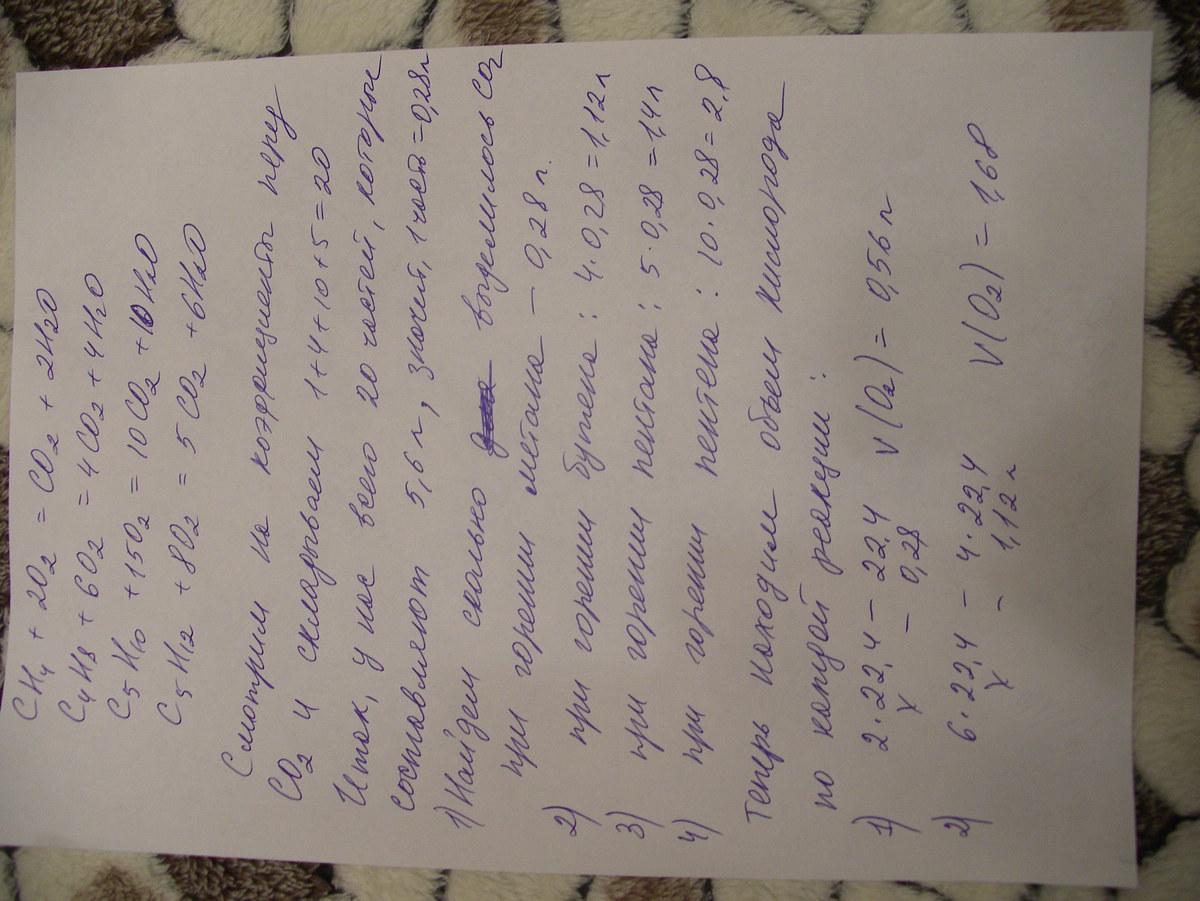 CH4 + 2O2 = CO2 + 2H2O
C4H8 + 6O2 = 4CO2 + 4H2O
C5H10 + 15O2 = 10CO2 + 10H2O
C5H12 + 8O2 = 5CO2 + 6H2O
Смотрим на коэффициенты перед
CO2 и складываем 1+4+10+5=20
Итак, у нас всего 20 частей, которые
составляют 5,6 л, значит, 1 часть = 0,28 л
1) Найдем сколько выделилось CO2
при горении метана – 0,28 л.
2) при горении бутена: 4·0,28 = 1,12 л
3) при горении пентана: 5·0,28 = 1,4 л
4) при горении пентена: 10·0,28 = 2,8
Теперь находим объем кислорода
по каждой реакции:
1) 2·22,4 – 22,4 V(O2) = 0,56 л
x – 0,28
2) 6·22,4 – 4·22,4 V(O2) = 1,68
x – 1,12 л